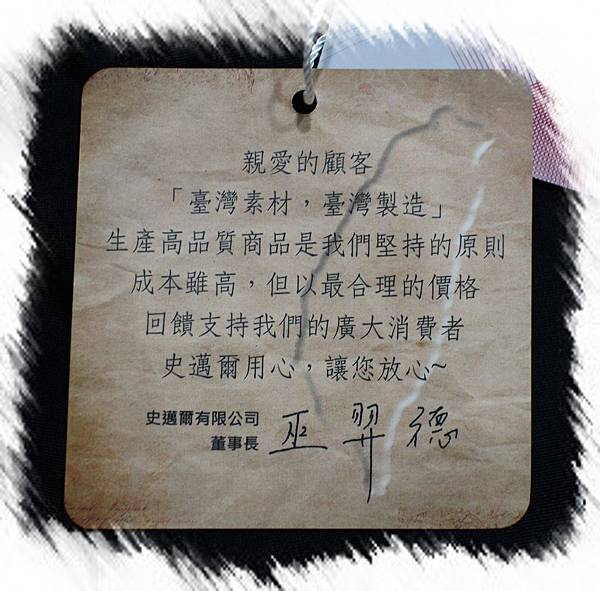 親愛的顧客
「臺灣素材，臺灣製造」
生產高品質商品是我們堅持的原則
成本雖高，但以最合理的價格
回饋支持我們的廣大消費者
史邁爾用心，讓您放心~
史邁爾有限公司
董事長 巫羿德